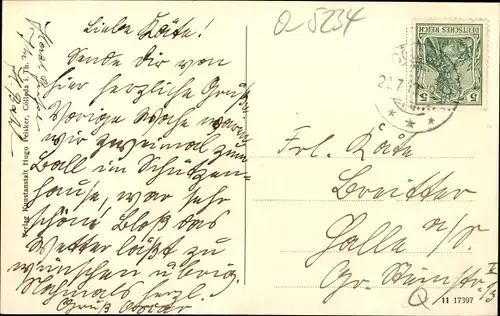 Liebe Käte!
Sende Dir von
hier herzliche Grüße
Vorige Woche waren
wir zweimal zum
Ball im Schützen-
hause, war sehr
schön! Bloß das
Wetter läßt zu
wünschen übrig.
Nochmals herzl.
Gruß
Verlag Kunstanstalt Hugo Peisker, Cölleda i. Th.
O-5234
DEUTSCHES REICH
5 5
Frl. Käte
Breitter
Halle a/S.
Gr. Steinstr.
11 17397